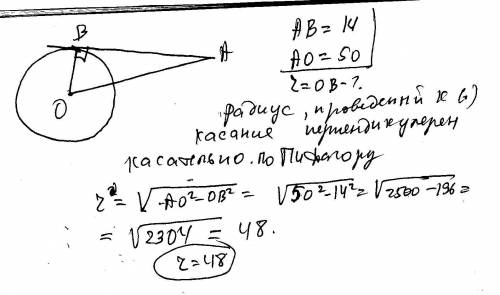 B
A
O
AB = 14
AO = 50
r = OB - ?
радиус, проведенный к
касания перпендикулярен
касательно. по Пифагору
r² = √AO² - OB² = √50² - 14² = √2500 - 196 =
= √2304 = 48.
r = 48